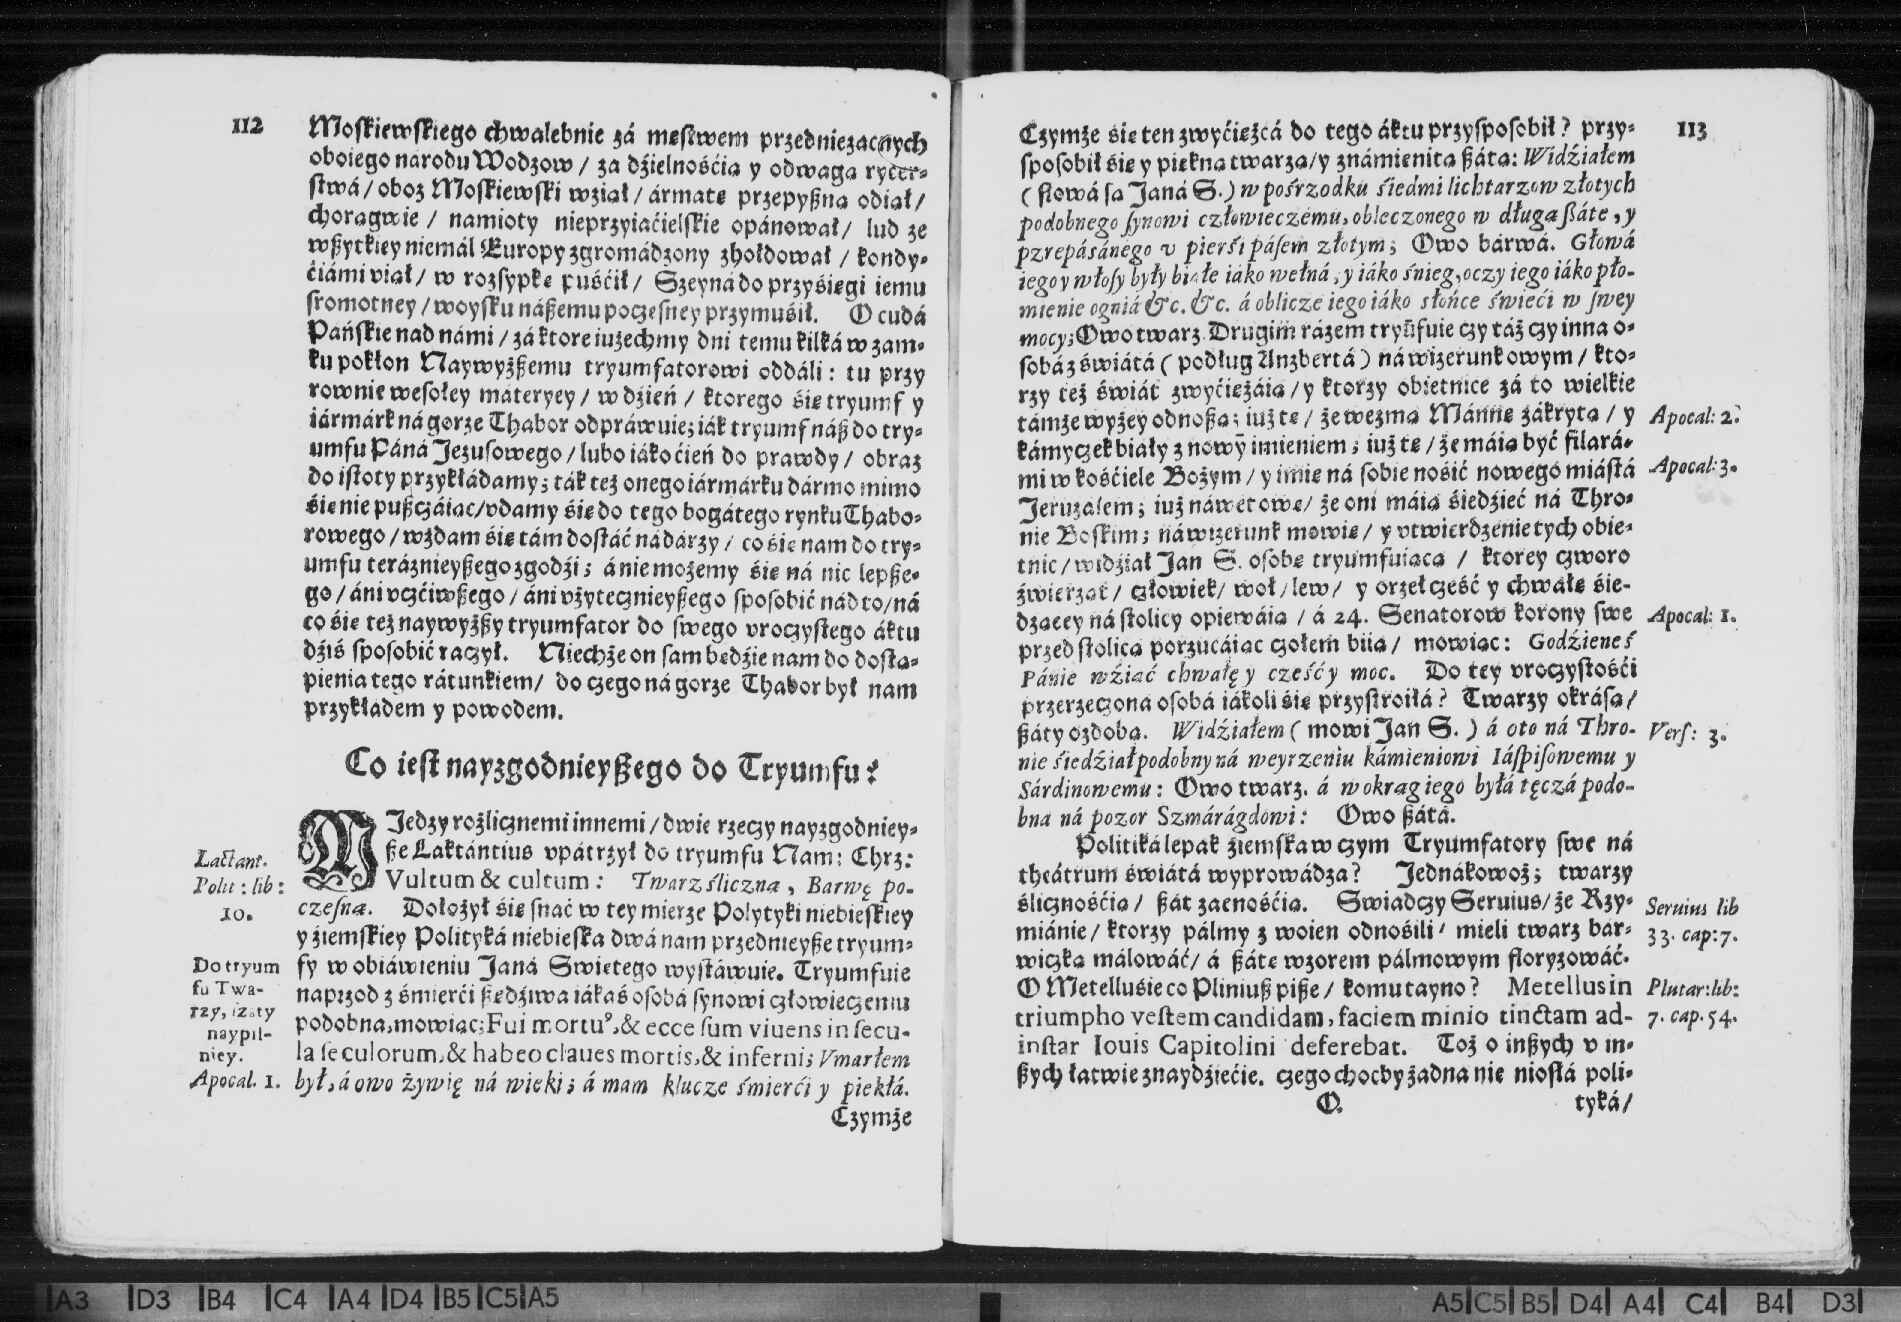 112
Moskiewskiego chwalebnie zá męstwem przedniezacnych
oboiego narodu Wodzow / za dźielnośćią y odwagą rycer-
stwá / oboz Moskiewski wźiął / ármatę przepyßną odiął /
chorągwie / namioty nieprzyiaćielskie opánował / lud ze
wßytkiey niemál Europy zgromádzony zhołdował / kondy-
ćiámi viął / w rozsypkę puśćił / Szeyná do przyśięgi iemu
sromotney / woysku náßemu poczesney przymuśił. O cudá
Pańskie nad námi / zá ktore iużechmy dni temu kilká w zam-
ku pokłon Naywyżßemu tryumfatorowi oddáli: tu przy
rownie wesołey materyey / w dźień / ktorego się tryumf y
iármárk ná gorze Thabor odpráwuie; iák tryumf náß do try-
umfu Páná Jezusowego / lubo iáko ćień do prawdy / obraz
do istoty przykłádamy; ták też onego iármárku dármo mimo
śię nie pußczáiąc / vdamy śię do tego bogátego rynku Thabo-
rowego / wżdam śię tám dostáć nádárzy / co śię nam do try-
umfu teráznieyßego zgodźi; á nie możemy śię ná nic lepße-
go / áni vczćiwßego / áni vżytecznieyßego sposobić nád to / ná
co śię też naywyżßy tryumfator do swego vroczystego áktu
dźiś sposobić raczył. Niechże on sam będźie nam do dostą-
pienia tego rátunkiem / do czego ná gorze Thabor był nam
przykładem y powodem.
Co iest nayzgodnieyßego do Tryumfu?
MJędzy rozlicznemi innemi / dwie rzeczy nayzgodniey-
ße Laktántius vpátrzył do tryumfu Nam: Chrz:
Vultum & cultum: Twarz śliczną, Barwę po-
czesną. Dołożył śię snać w tey mierze Polytyki niebieskiey
y źiemskiey Polityká niebieska dwá nam przednieyße tryum-
fy w obiáwieniu Janá Swiętego wystáwuie. Tryumfuie
naprzod z śmierći ßedźiwa iákaś osobá synowi człowieczemu
podobna, mowiąc; Fui mortu⁹, & ecce sum viuens in secu-
la seculorum, & habeo claues mortis, & inferni; Vmarłem
był, á owo żywię ná wieki; á mam klucze śmierći y piekłá.
Czymże
Lactant.
Polit: lib:
10.
Do tryum
fu Twa-
rzy, i zaty
naypil-
niey.
Apocal. 1.
113
Czymże śię ten zwyćięzcá do tego áktu przysposobił? przy-
sposobił śię y piękną twarzą / y známienitą ßátą: Widźiałem
( słowá są Janá S. ) w pośrzodku śiedmi lichtarzow złotych
podobnego synowi człowieczemu, obleczonego w długą ßátę, y
przepásánego v pierśi pásem złotym; Owo bárwá. Głowá
iego y włosy były białe iáko wełná, y iáko śnieg, oczy iego iáko pło-
mienie ogniá &c. &c. á oblicze iego iáko słońce świeći w swey
mocy; Owo twarz. Drugim rázem tryũfuie czy táż czy inna o-
sobá z świátá ( podług Anzbertá ) ná wizerunk owym / kto-
rzy też świát zwyćiężáią / y ktorzy obietnice zá to wielkie
támże wyżey odnoßą; iuż tę / że wezmą Mánnę zákrytą / y
kámyczek biały z nowỹ imieniem; iuż tę / że máią być filará-
mi w kośćiele Bożym / y imię ná sobie nośić nowego miástá
Jeruzalem; iuż náwet owę / że oni máią śiedźieć ná Thro-
nie Boskim; ná wizerunk mowię / y vtwierdzenie tych obie-
tnic / widźiał Jan S. osobę tryumfuiącą / ktorey czworo
źwierząt / człowiek / woł / lew / y orzeł cześć y chwałę śie-
dzącey ná stolicy opiewáią / á 24. Senatorow korony swe
przed stolicą porzucáiąc czołem biią / mowiąc: Godźieneś
Pánie wźiąć chwałę y cześć y moc. Do tey vroczystośći
przerzeczona osobá iákoli śię przystroiłá? Twarzy okrásą /
ßáty ozdobą. Widźiałem ( mowi Jan S. ) á oto ná Thro-
nie śiedźiał podobny ná weyrzeniu kámieniowi Iáspisowemu y
Sárdinowemu: Owo twarz. á wokrąg iego byłá tęczá podo-
bna ná pozor Szmárágdowi: Owo ßátá.
Politiká lepak źiemska w czym Tryumfatory swe ná
theátrum świátá wyprowádza? Jednákowoż; twarzy
ślicznośćią / ßát zacnośćią. Swiadczy Seruius / że Rzy-
miánie / ktorzy pálmy z woien odnośili / mieli twarz bar-
wiczką málowáć / á ßátę wzorem pálmowym floryzowáć.
O Metellusie co Pliniuß piße / komu tayno? Metellus in
triumpho vestem candidam, faciem minio tinctam ad-
instar Iouis Capitolini deferebat. Toż o inßych v in-
ßych łatwie znaydźiećie. czego choćby żadna nie niosłá poli-
O.
tyká /
Apocal: 2.
Apocal: 3.
Apocal: 1.
Vers: 3.
Seruius lib
33. cap: 7.
Plutar: lib:
7. cap. 54.
A3 D3 B4 C4 A4 D4 B5 C5 A5
A5 C5 B5 D4 A4 C4 B4 D3